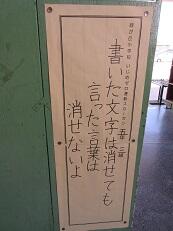 書いた文字は消せても
言った言葉は
消せないよ